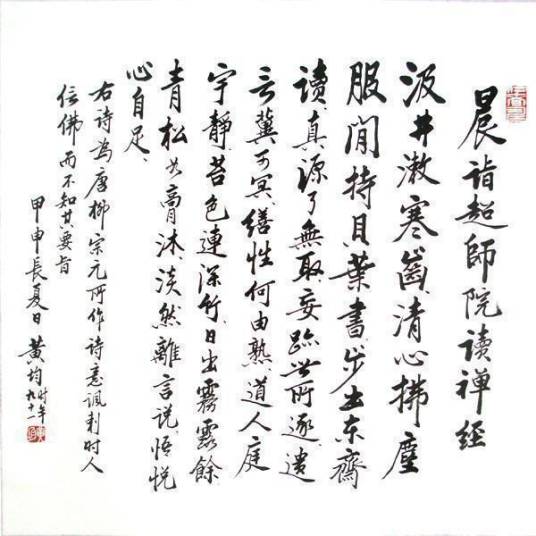 晨詣超師院读禅经
汲井漱寒齒清心拂塵
服閒持貝葉書步出东齋
讀真源了無取妄跡世所逐遺
言冀可冥缮性何由熟道人庭
宇靜苔色連深竹日出霧露餘
青松如膏沐淡然離言說悟悦
心自足
右诗為唐柳宗元所作诗意讽刺时人
信佛而不知其要旨
甲申長夏日黄均时年九十一